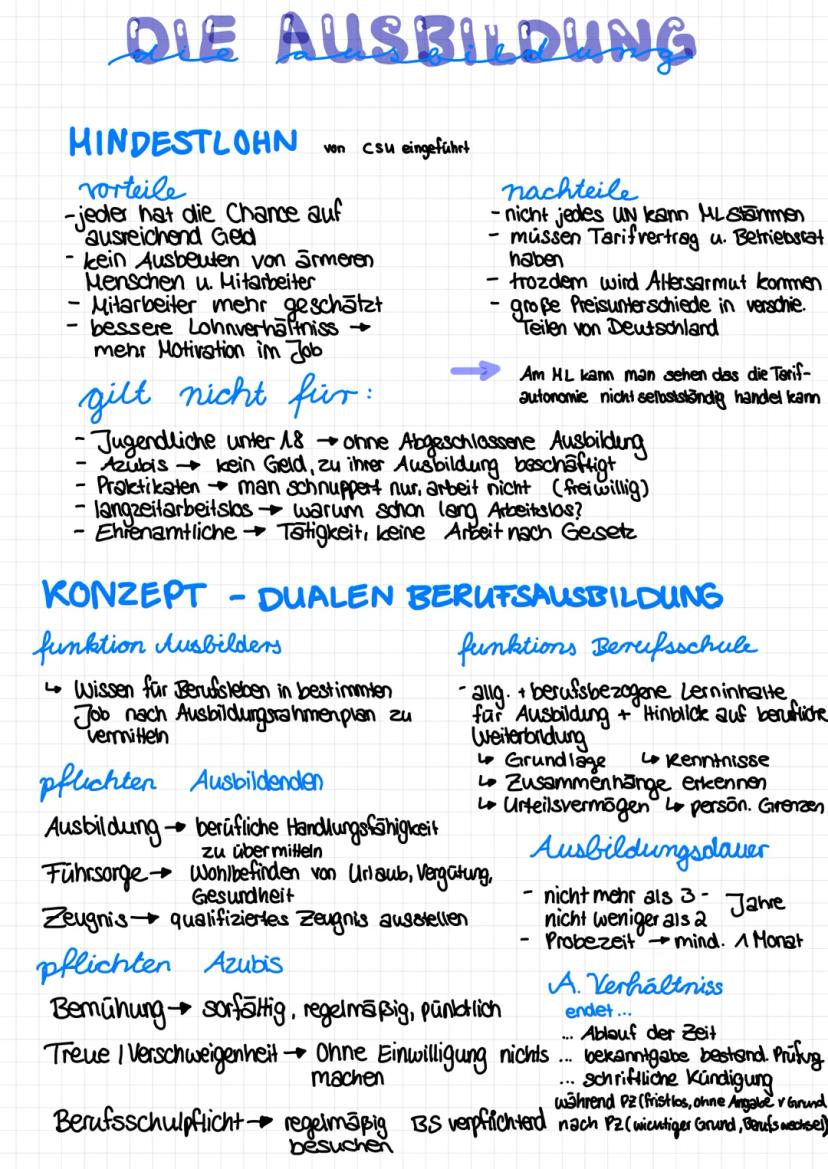 DIE AUSBILDUNG
die ausbildung
MINDESTLOHN von CSU eingeführt
vorteile
-jeder hat die Chance auf
ausreichend Geld
- kein Ausbeuten von ärmeren
Menschen u. Mitarbeiter
- Mitarbeiter mehr geschätzt
- bessere Lohnverhältniss →
mehr Motivation im Job
nachteile
- nicht jedes UN kann ML stämmen
- müssen Tarifvertrag u. Betriebsrat
haben
- trozdem wird Altersarmut kommen
- große Preisunterschiede in verschie.
Teilen von Deutschland
→ Am ML kann man sehen das die Tarif-
autonomie nicht selbstständig handel kann
gilt nicht für:
- Jugendliche unter 18 → ohne Abgeschlossene Ausbildung
- Azubis → kein Geld, zu ihrer Ausbildung beschäftigt
- Praktikaten → man schnuppert nur, arbeit nicht (freiwillig)
- langzeitarbeitslos → warum schon lang Arbeitslos?
- Ehrenamtliche → Tätigkeit, keine Arbeit nach Gesetz
KONZEPT - DUALEN BERUFSAUSBILDUNG
funktion Ausbilders
↳ Wissen für Berufsleben in bestimmten
Job nach Ausbildungsrahmenplan zu
vermitteln
pflichten Ausbildenden
Ausbildung → berufliche Handlungsfähigkeit
zu übermitteln
Führsorge → Wohlbefinden von Urlaub, Vergütung,
Gesundheit
Zeugnis → qualifiziertes Zeugnis ausstellen
pflichten Azubis
Bemühung → sorfältig, regelmäßig, pünktlich
Treue / Verschweigenheit → Ohne Einwilligung nichts
machen
Berufsschulpflicht → regelmäßig BS verpflichterd
besuchen
funktions Berufsschule
- allg. + berufsbezogene Lerninhalte
für Ausbildung + Hinblick auf berufliche
Weiterbildung
↳ Grundlage ↳ Kenntnisse
↳ Zusammenhänge erkennen
↳ Urteilsvermögen ↳ persön. Grenzen
Ausbildungsdauer
- nicht mehr als 3 - Jahre
nicht weniger als 2
- Probezeit → mind. 1 Monat
A. Verhältniss
endet...
... Ablauf der Zeit
... bekanntgabe bestand. Prüfung
... schriftliche Kündigung
während PZ (fristlos, ohne Angabe v Grund
nach PZ (wichtiger Grund, Berufswechsel)